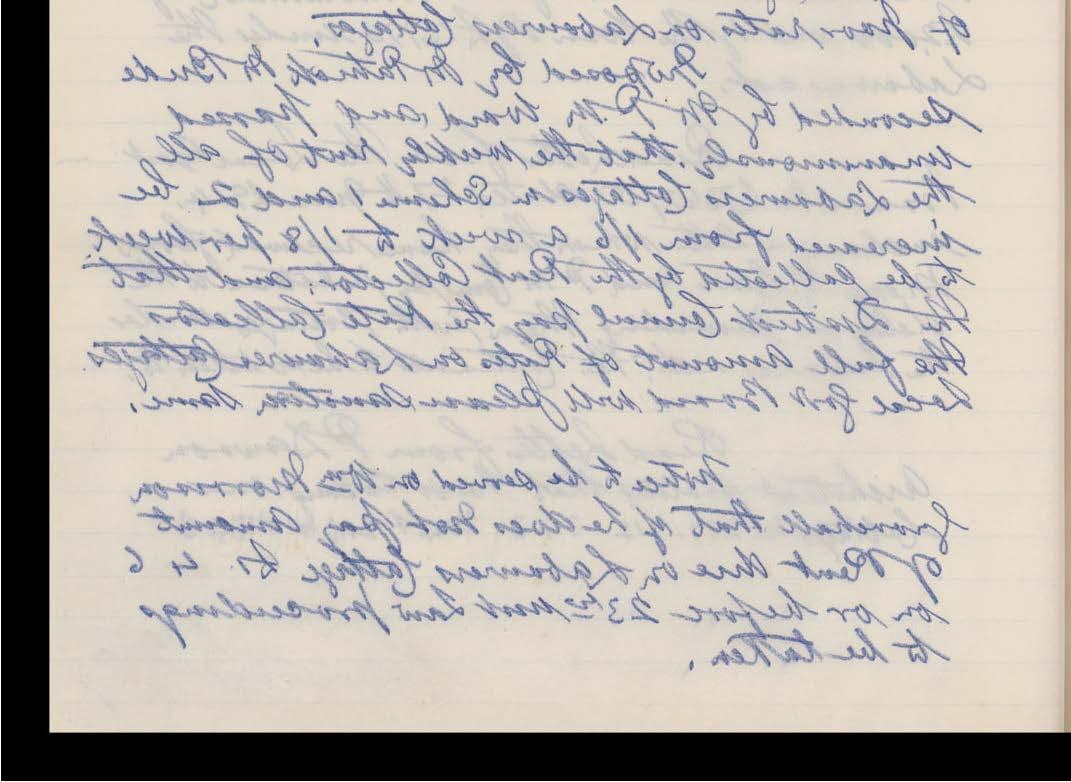 of Poor rate on Labourers Cottages.
Proposed by Mr Patrick McBride
Seconded by Mr P. M. Ward and passed
unanimously. that the weekly rent of all
the Labourers Cottages in Scheme 1 and 2 be
increased from 1/6 a week to 1/8 per week
to be Collected by the Rent Collector, and that
the District Council pay the Rate Collector
the full amount of Rates on Labourers Cottages
Local Govt Board will please Sanction Same.
Notice to be served on Wm Morrison
that if he does not pay Amount
of Rent due on Labourers Cottage No. 4
on or before 23rd inst Law proceedings
to be taken.